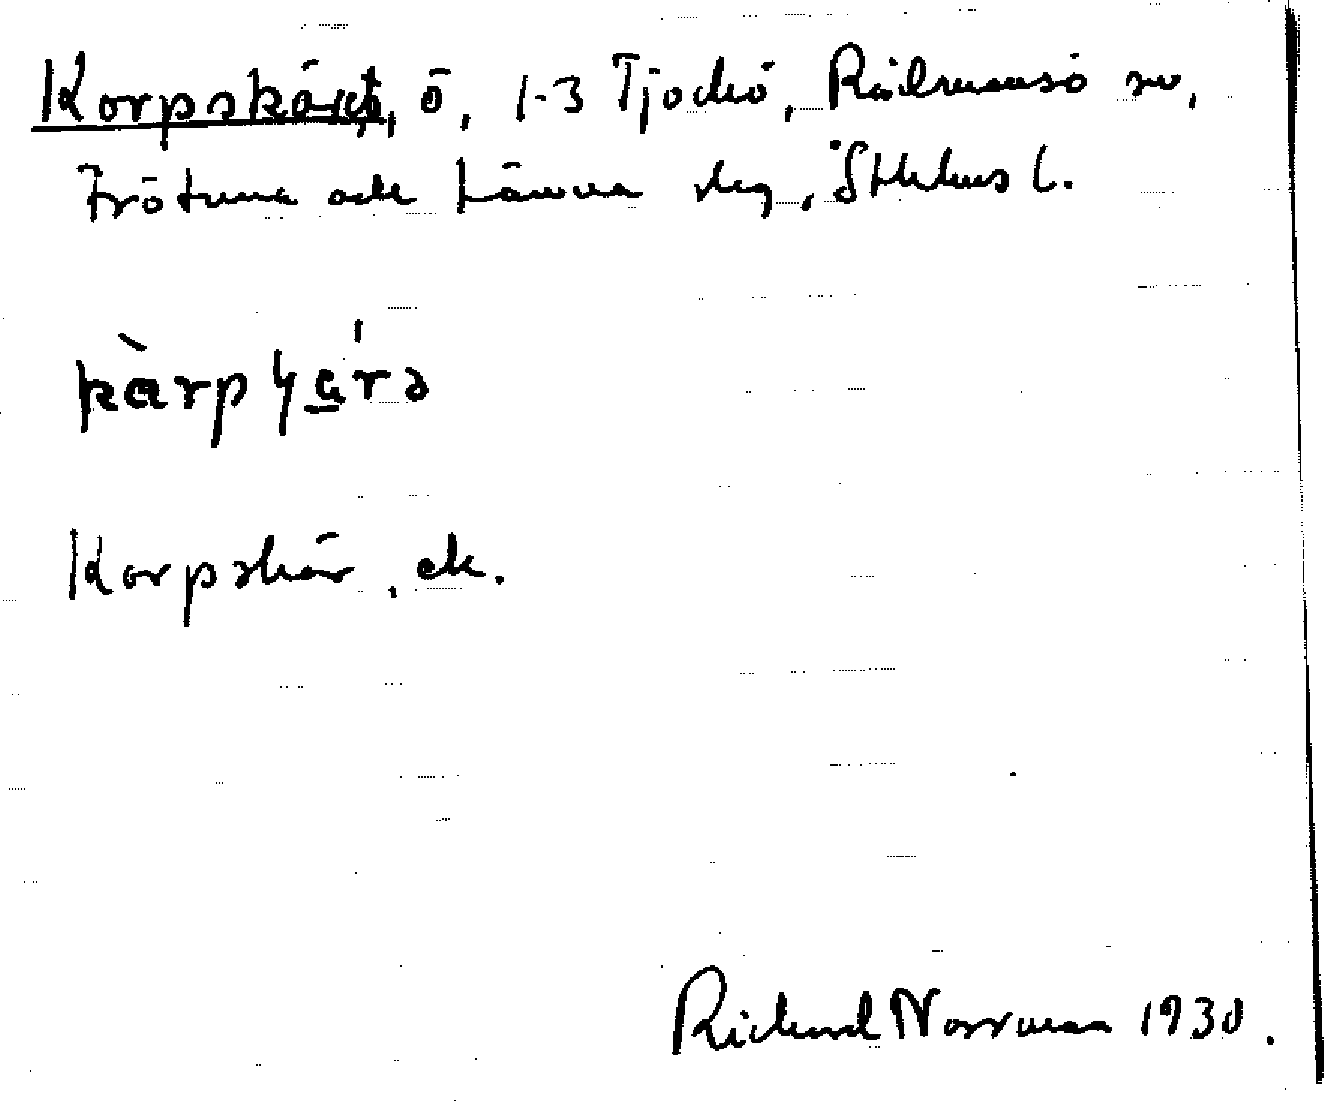 Korpskäret, ö, 1-3 Tjockö, Rådmansö sn,
Frötuna och Länna skg, Sthlms l.
Korpskär, ek.
Richard Norrman 1930.